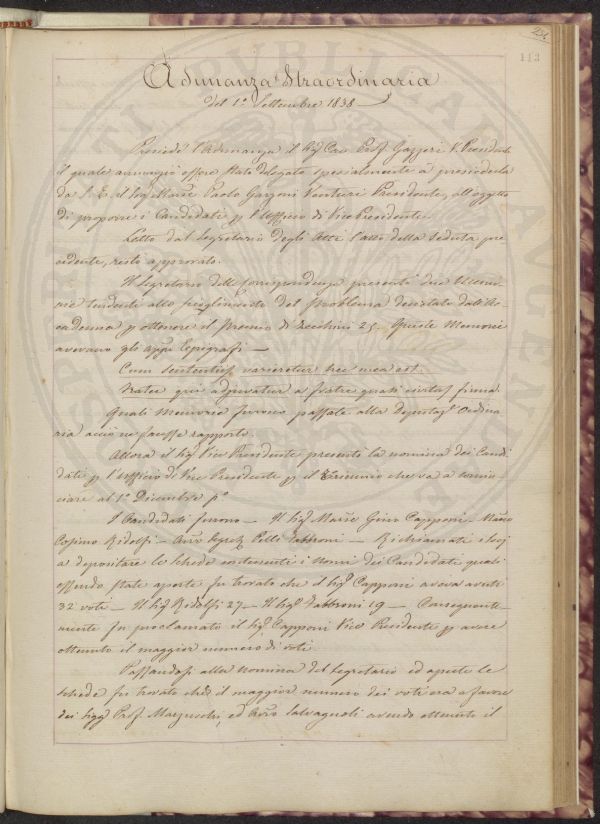 113
Adunanza Straordinaria
del 1.° Settembre 1838
Presiedè l'Adunanza il Sig. Cav. Prof. Gazzeri V. Presidente
il quale annunziò essere stato delegato specialmente a presiederla
da S. E. il Sig. March. Paolo Garzoni Venturi Presidente, all'oggetto
di proporre i Candidati p l'Uffizio di Vice Presidente.
Letto dal Segretario degli Atti l'atto della Seduta pre
cedente, restò approvato.
Il Segretario delle Corrispondenze presentò due Memo
rie tendenti allo scioglimento del problema denotato dall'Ac
cademia p ottenere il Premio di Zecchini 25. Queste Memorie
avevano gli appi Epigrafi —
Cum sententiis varieretur hec mea est.
Frater qui adjuvatur a fratre quasi civitas firma.
Quali Memorie furono passate alla Deputaz. Ordina
ria acciò ne facesse rapporto.
Allora il Sig. Vice Presidente presentò la nomina dei Candi
dati p l'Uffizio di Vice Presidente p il Triennio che va a comin
ciare al 1.° Decembre p.°
I Candidati furono — Il Sig. March. Gino Capponi — March.
Cosimo Ridolfi — Avv. Pelli Fabbroni — Richiamati
a depositare le schede contenenti i Nomi dei Candidati quali
essendo state aperte fu trovato che il Sig. Capponi aveva avuti
32 voti — Il Sig. Ridolfi 27 — Il Sig. Fabbroni 19 — Conseguente-
mente fu proclamato il Sig. Capponi Vice Presidente p avere
ottenuto il maggior numero di voti.
Passandosi alla nomina del Segretario ed aperte le
schede fu trovato che il maggior numero dei voti era a favore
dei Sigg. Prof. Mazzuchi, ed Avv. Salvagnoli avendo ottenuto il